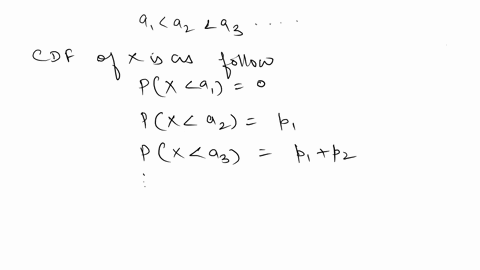 a₁ < a₂ < a₃ ....
CDF of x is as follow
P(X < a₁) = 0
P(X < a₂) = p₁
P(X < a₃) = p₁ + p₂
⋮